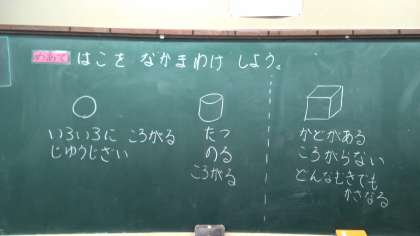 めあて はこを なかまわけ しよう。
いろいろに ころがる
じゆうじざい
たつ
のる
ころがる
かどがある
ころがらない
どんなむきでも
かさなる